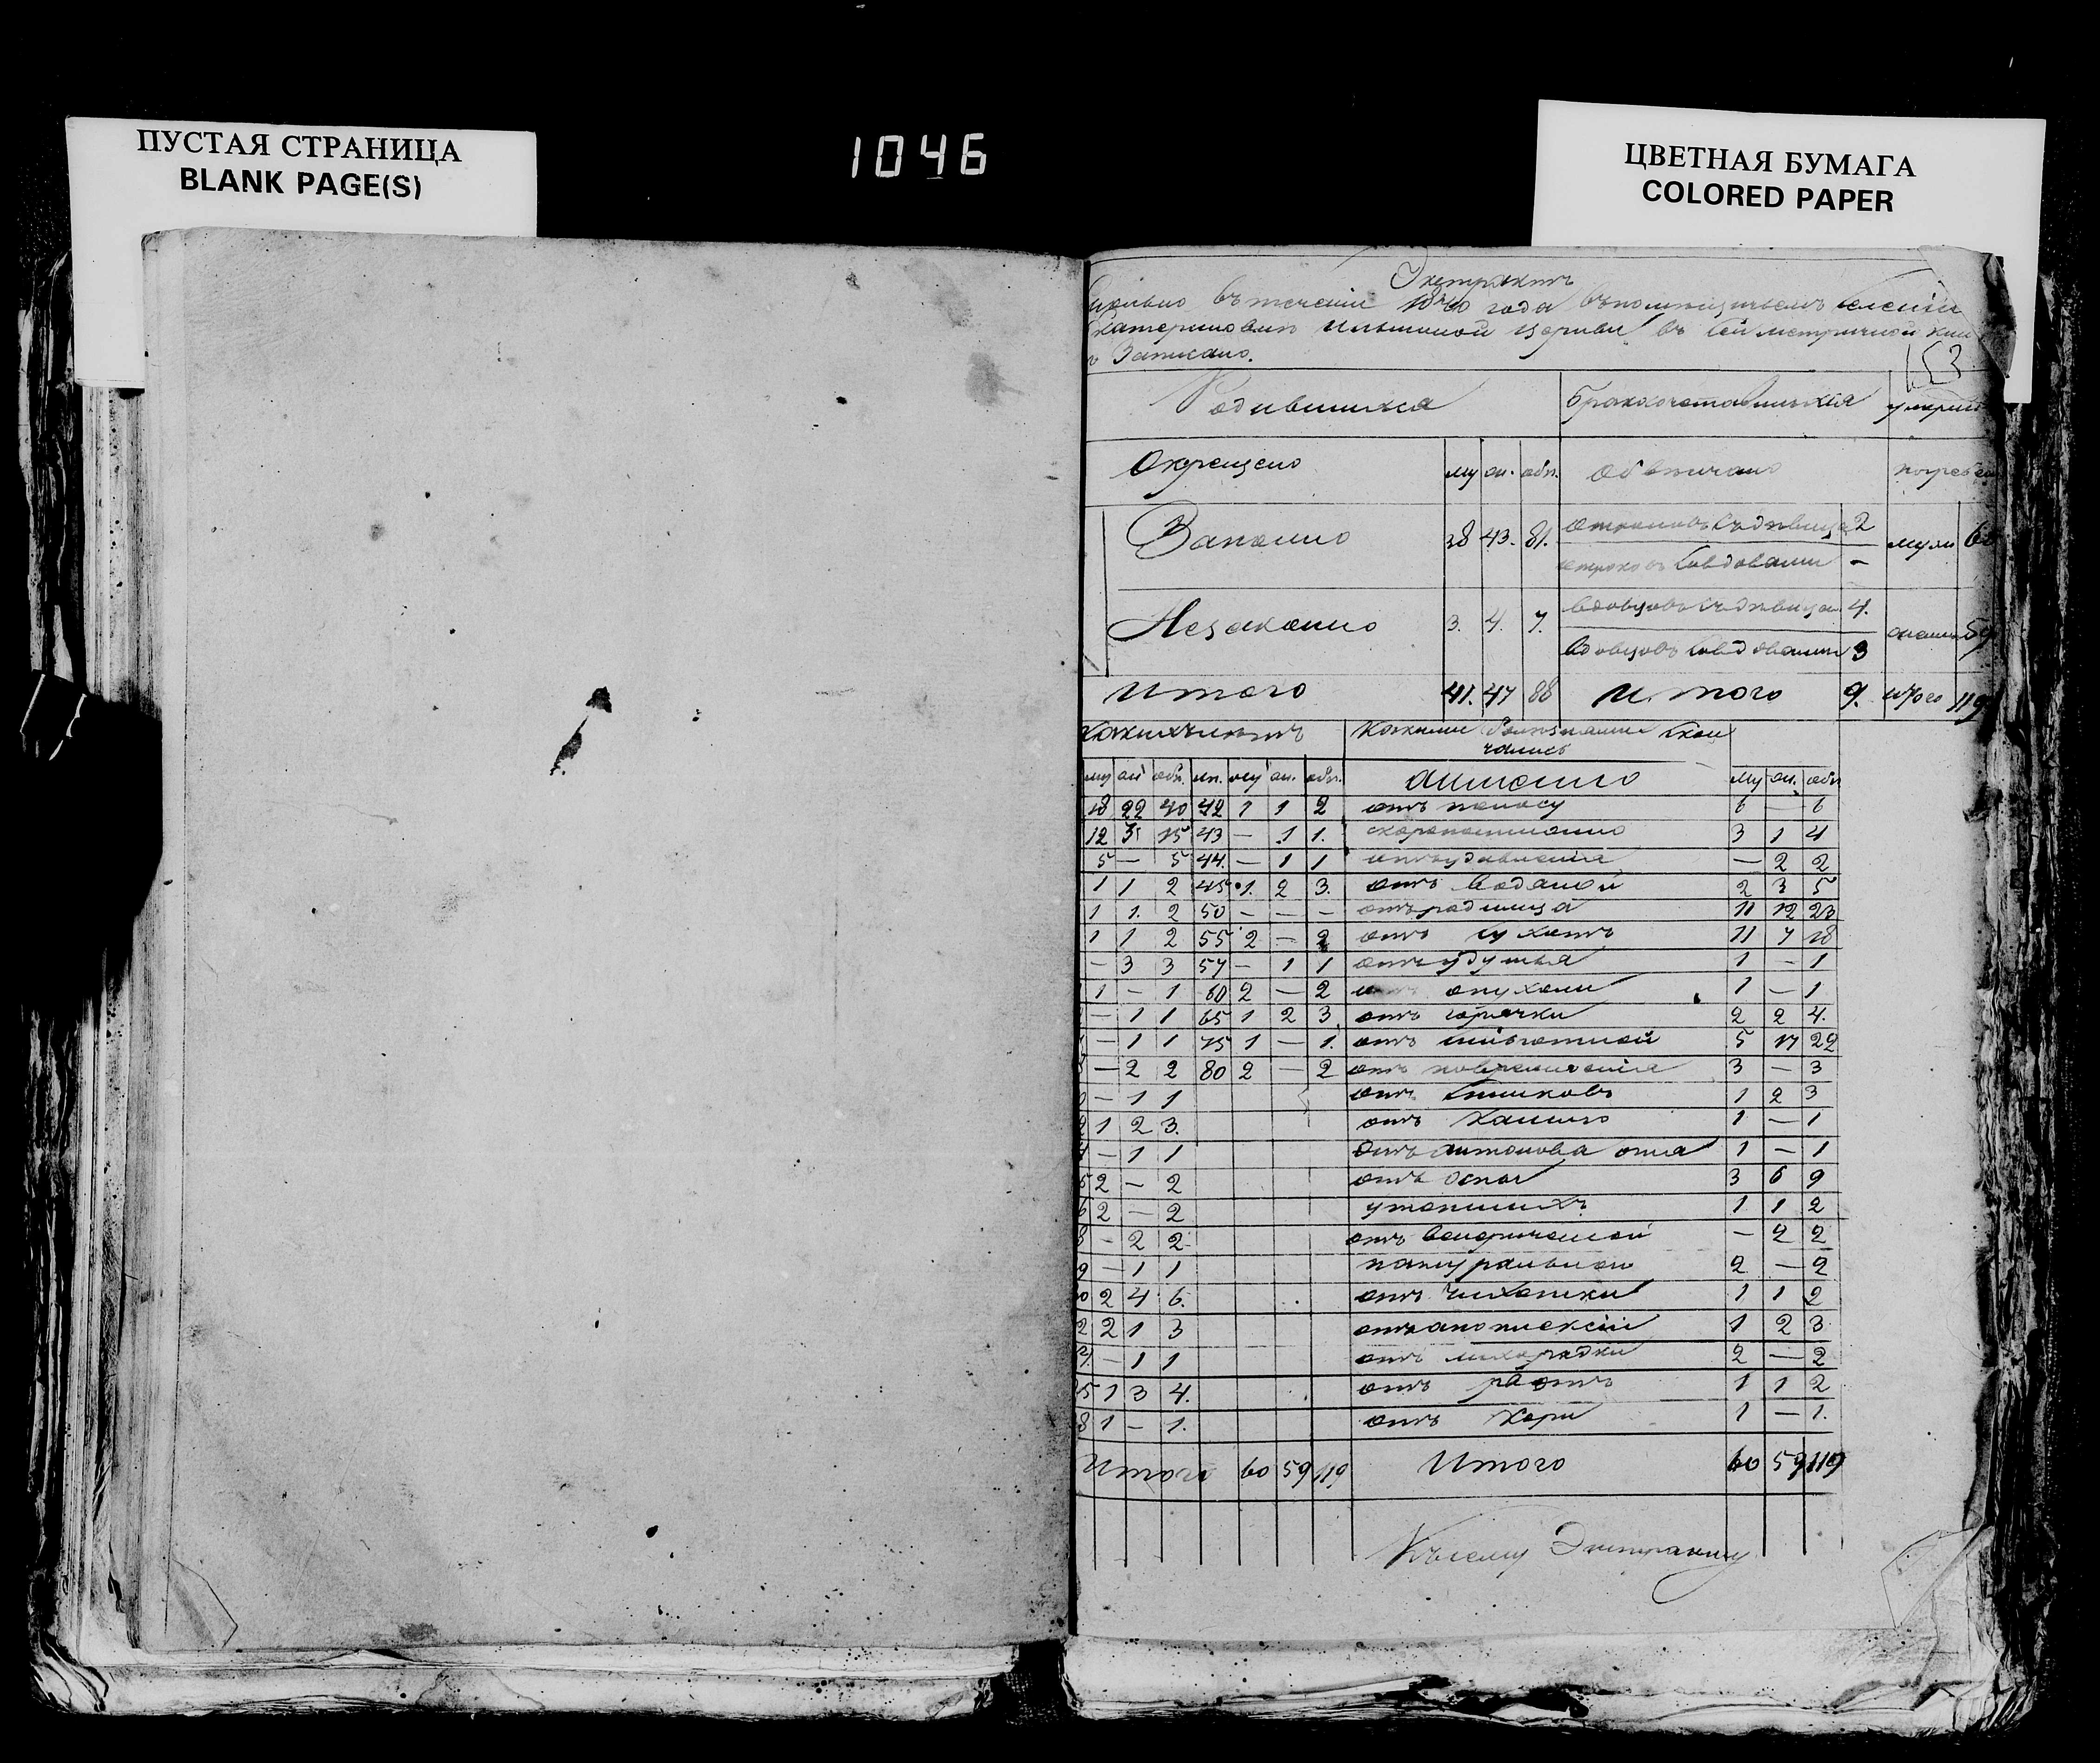 ПУСТАЯ СТРАНИЦА
BLANK PAGE(S)
1046
ЦВЕТНАЯ БУМАГА
COLORED PAPER
Экстрактъ
въ теченіи 1840 года
Ильинской церкви въ сей метричной
Записано.
153
Родившихся
Окрещено му жн. обп. Обвенчано
Законно 38 43. 81. 2
му 60
-
Незаконно 3. 4. 7. 4.
59
3
Итого 41. 47 88 Итого 9. Итого 119
Какихъ лѣтъ Какими болѣзнями
му жн обп. лѣ. му жн. обп. именно му жн. обп
18 22 40 42 1 1 2 отъ поносу 6 — 6
12 3 15 43 — 1 1. скоропостижно 3 1 4
5 — 5 44. — 1 1 — 2 2
1 1 2 45 1. 2 3. отъ водяной 2 3 5
1 1. 2 50 — — — отъ родимца 11 12 23
1 1 2 55 2 — 2 отъ сухотъ 11 7 18
— 3 3 57 — 1 1 отъ удушья 1 — 1
1 — 1 60 2 — 2 опухоли 1 — 1
— 1 1 65 1 2 3 отъ горячки 2 2 4.
— 1 1 75 1 — 1. отъ 5 17 22
— 2 2 80 2 — 2 отъ поврежденія 3 — 3
— 1 1 отъ 1 2 3
1 2 3. отъ кашлю 1 — 1
— 1 1 Отъ антонова огня 1 — 1
5 2 — 2 отъ оспы 3 6 9
6 2 — 2 утопшихъ 1 1 2
8 — 2 2 отъ венерической — 2 2
9 — 1 1 натуральною 2 — 2
2 4 6. отъ чихотки 1 1 2
2 2 1 3 отъ апоплексіи 1 2 3
— 1 1 отъ лихорадки 2 — 2
5 1 3 4. отъ рвотъ 1 1 2
8 1 — 1. отъ кори 1 — 1.
Итого 60 59 119 Итого 60 59 119
Къ сему Экстракту